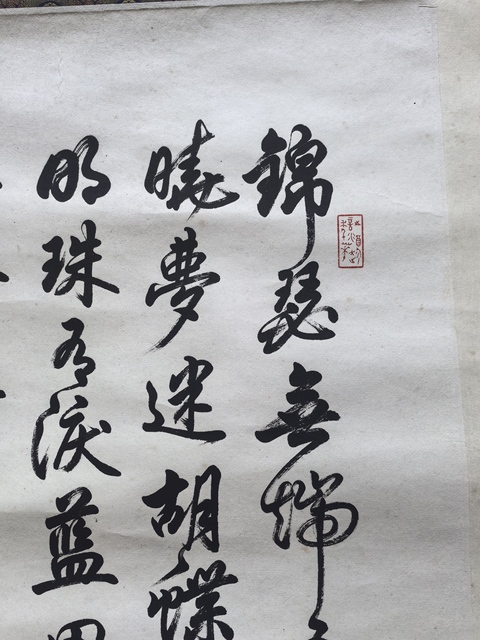 錦瑟無端
曉夢迷胡蝶
明珠有淚藍田